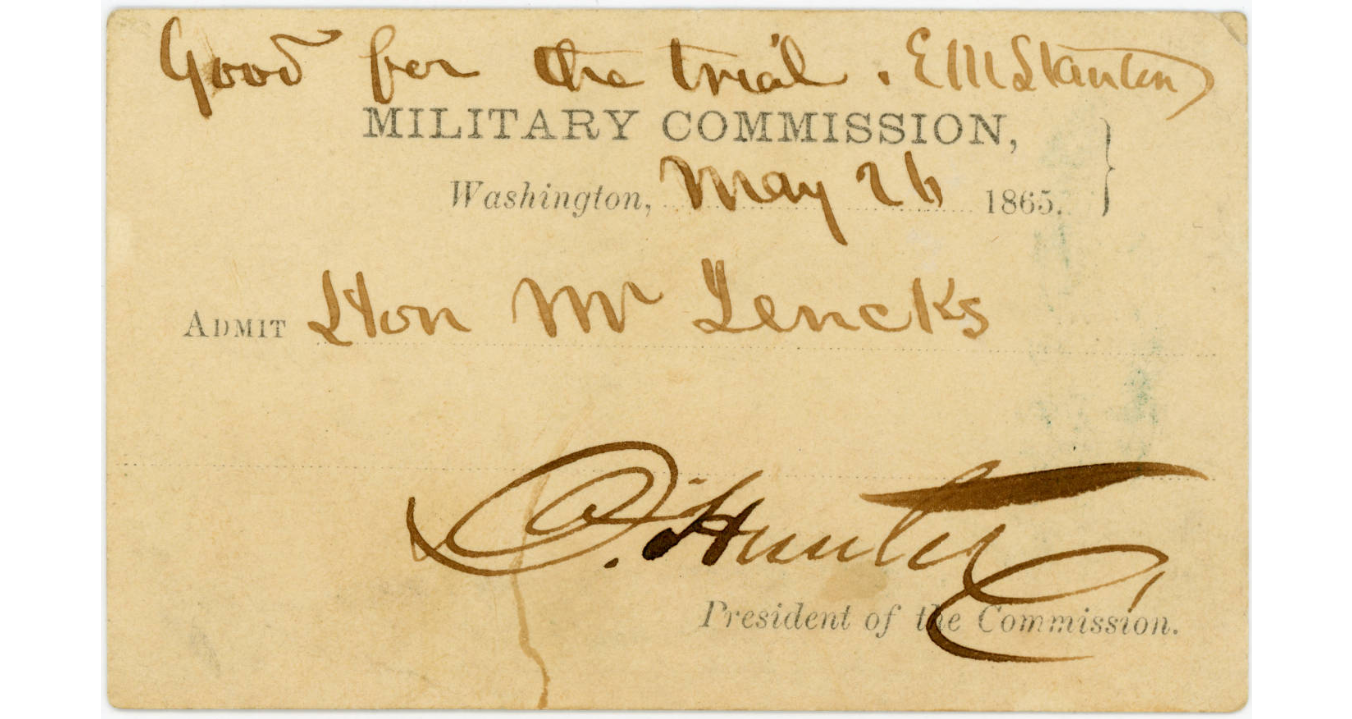 Good for the trial. E M Stanton
MILITARY COMMISSION,
Washington, May 26 1865.
ADMIT Hon Mr Jencks
D. Hunter
President of the Commission.